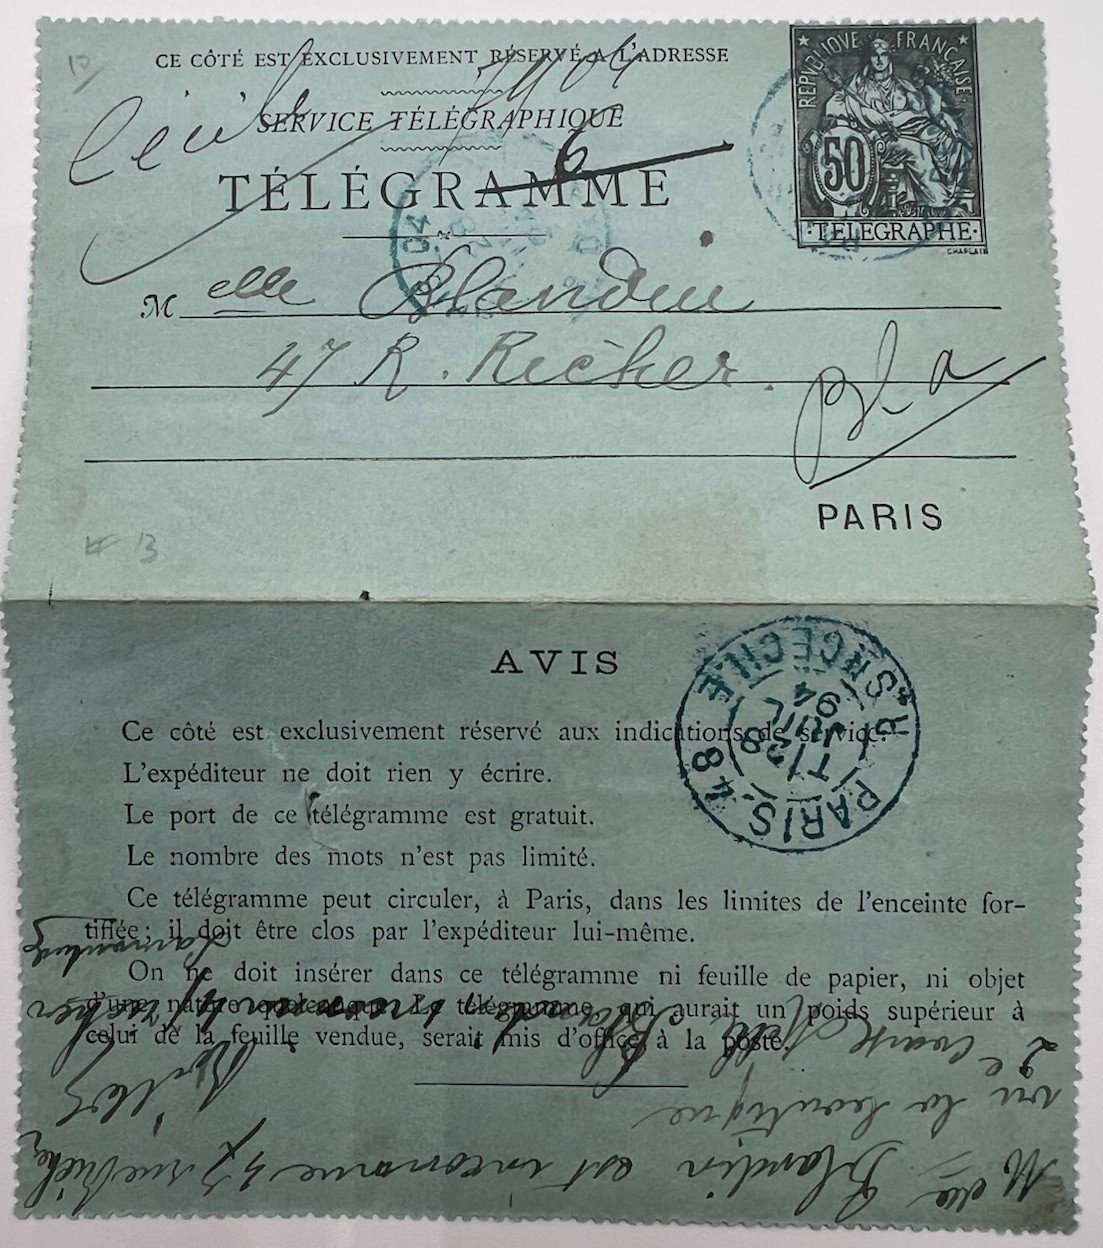 CE CÔTÉ EST EXCLUSIVEMENT RÉSERVÉ A L'ADRESSE
SERVICE TÉLÉGRAPHIQUE
TÉLÉGRAMME
6
REPUBLIQUE FRANÇAISE
50
TELEGRAPHE
CHAPLAIN
Melle Blandin
47 R. Richer.
Bla
PARIS
13
AVIS
Ce côté est exclusivement réservé aux indications de service.
L'expéditeur ne doit rien y écrire.
Le port de ce télégramme est gratuit.
Le nombre des mots n'est pas limité.
Ce télégramme peut circuler, à Paris, dans les limites de l'enceinte for-
tifiée; il doit être clos par l'expéditeur lui-même.
On ne doit insérer dans ce télégramme ni feuille de papier, ni objet
d'une nature quelconque. Le télégramme qui aurait un poids supérieur à
celui de la feuille vendue, serait mis d'office à la poste.
PARIS. 48 R. STE CECILE
28
JUIL
94
Melle Blandin est inconnue 47 rue Richer